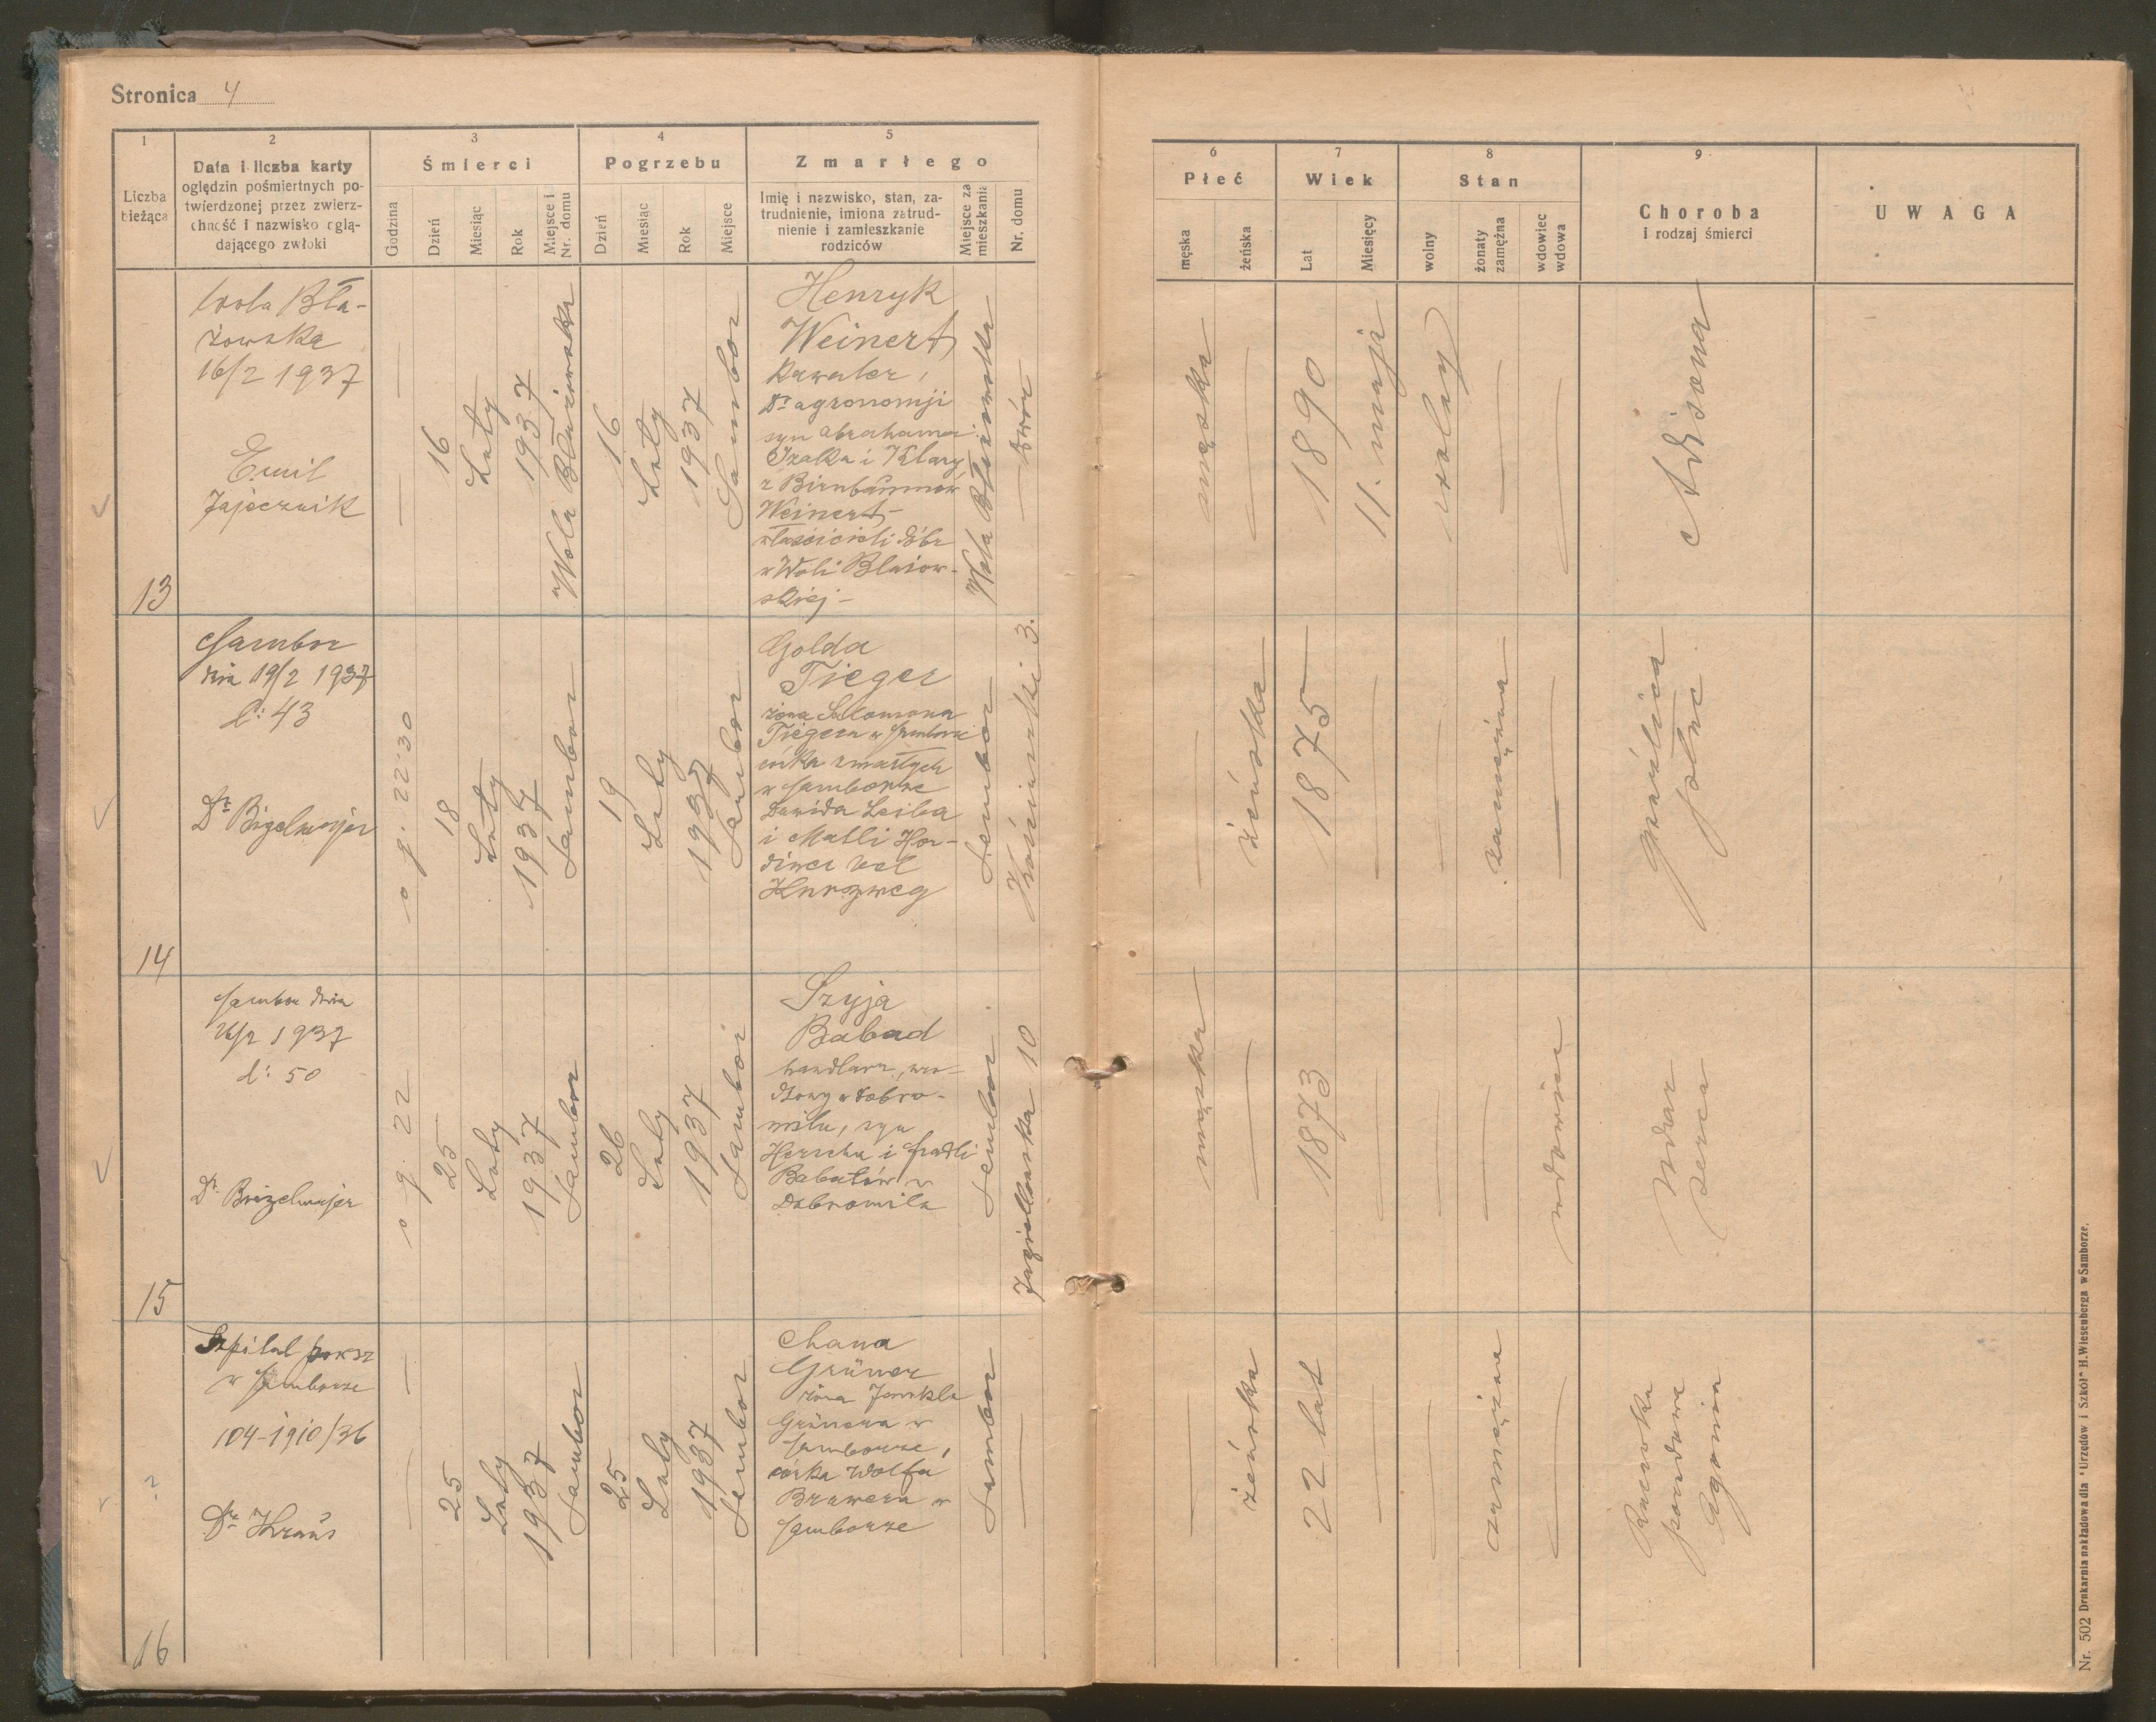 Stronica 4
1
2
3
4
5
Liczba
bieżąca
Data i liczba karty
oględzin pośmiertnych po-
twierdzonej przez zwierz-
chność i nazwisko oglą-
dającego zwłoki
Śmierci
Godzina
Dzień
Miesiąc
Rok
Miejsce i
Nr. domu
Pogrzebu
Dzień
Miesiąc
Rok
Miejsce
Zmarłego
Imię i nazwisko, stan, za-
trudnienie, imiona zatrud-
nienie i zamieszkanie
rodziców
Miejsce za
mieszkania
Nr. domu
6
7
8
9
Płeć
męska
żeńska
Wiek
Lat
Miesięcy
Stan
wolny
żonaty
zamężna
wdowiec
wdowa
Choroba
i rodzaj śmierci
UWAGA
13
Wola Bła-
żowska
16/2 1937
Emil
Jajecznik
16
Luty
1937
Wola Błażowska
16
Luty
1937
Sambor
Henryk
Weinert
Kawaler,
Dr agronomji
syn Abrahama
Izaka i Klary
z Birnbaumów
Weinert
właścicieli dóbr
w Woli Błażow-
skiej
Wola Błażowska
Dwór
męska
1890
11. maja
wolny
Adisona
14
Sambor
dnia 19/2 1937
l: 43
Dr Bigelmajer
o g. 22:30
18
Luty
1937
Sambor
19
Luty
1937
Sambor
Golda
Tieger
żona Salomona
Tiegera w Samborze
córka zmarłych
w Samborze
Dawida Leiba
i Matli Hor-
diner vel
Kurzweg
Sambor
Kościuszki 3.
żeńska
1875
zamężna
gruźlica
płuc
15
Sambor dnia
26/2 1937
l: 50
Dr Bigelmajer
o g. 22
25
Luty
1937
Sambor
26
Luty
1937
Sambor
Szyja
Babad
handlarz, uro-
dzony w Dobro-
milu, syn
Herscha i Fradli
Babadów w
Dobromilu
Sambor
Jagiellońska 10
męska
1873
wdowiec
Udar
serca
16
Szpital powsz
w Samborze
104-1910/36
?
Dr Kraus
25
Luty
1937
Sambor
25
Luty
1937
Sambor
Chana
Grüner
żona Jankla
Grünera w
Samborze,
córka Wolfa
Brawera w
Samborze
Sambor
żeńska
22 lat
zamężna
Agonia
Nr. 502 Drukarnia nakładowa dla "Urzędów i Szkół" H. Wiesenberga w Samborze.